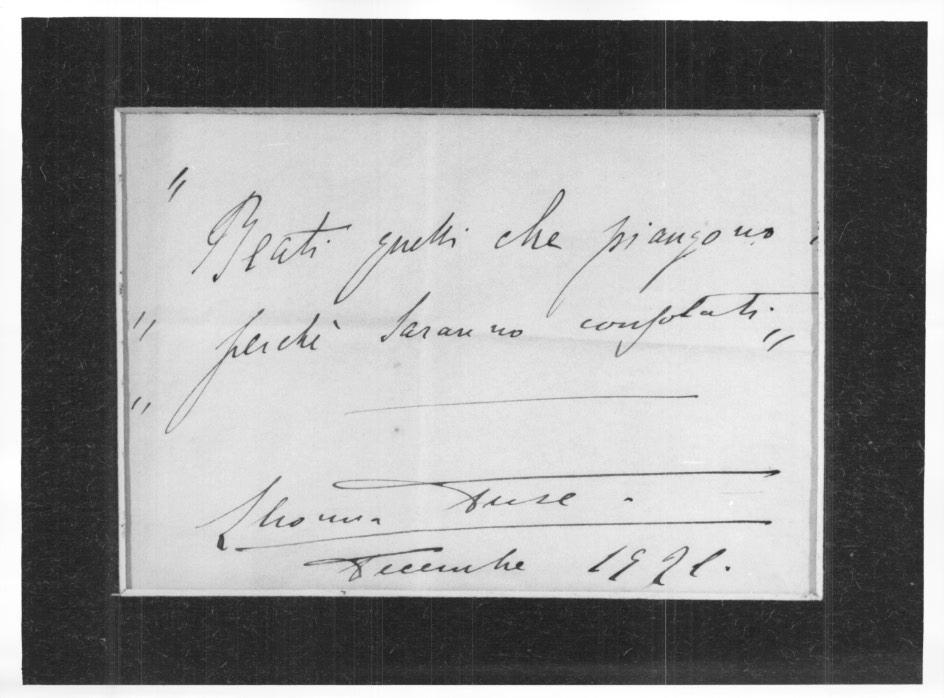 " Beati quelli che piangono,
" perchè saranno consolati. "
"
Eleonora Duse -
Decembre 1921.